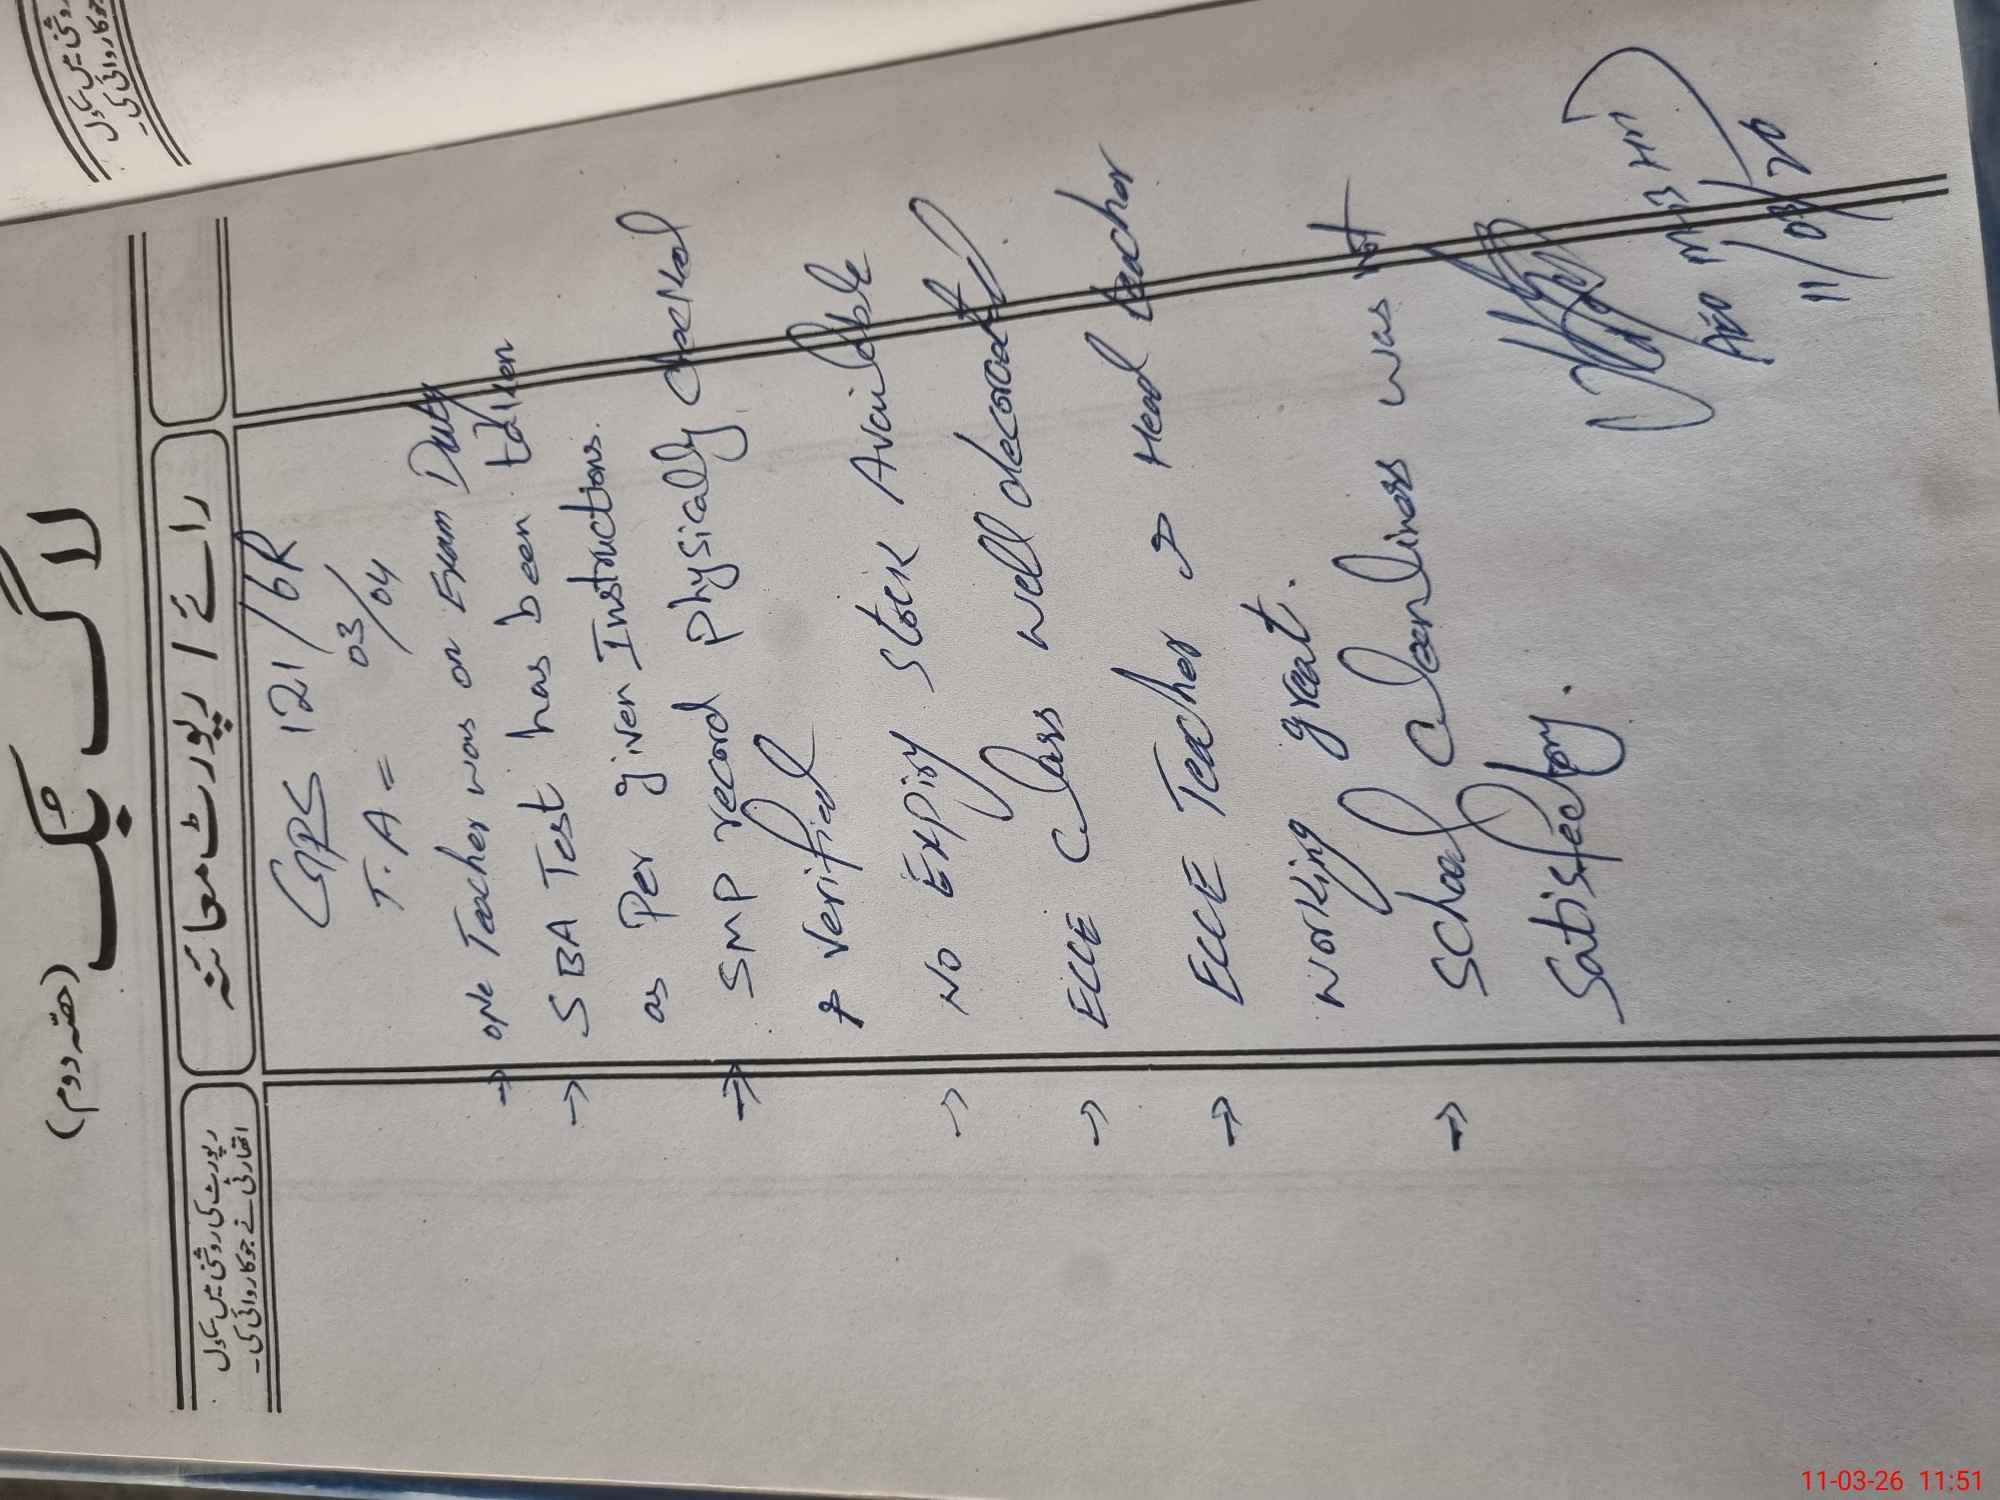 روشنی میں سکول
جو کاروائی کی۔
لاگ بک
(حصّہ دوم)
رائے / رپورٹ معائنہ
رپورٹ کی روشنی میں سکول
اتھارٹی نے جو کاروائی کی۔
GPS 121/6R
T.A = 03/04
→ one Teacher was on Exam Duty
→ SBA Test has been taken
as Per given Instructions.
→ SMP record physically checked
& verified
→ No Expiry stock Available
→ ECCE class well decorated
→ ECCE Teacher & Head teacher
working great.
→ School cleanliness was not
Satisfectory.
AEO
11/03/20
11-03-26 11:51